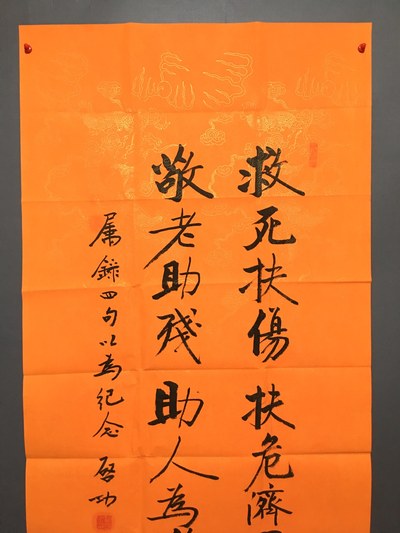 救死扶傷 扶危濟
敬老助殘 助人為
属錄四句以為紀念 啓功